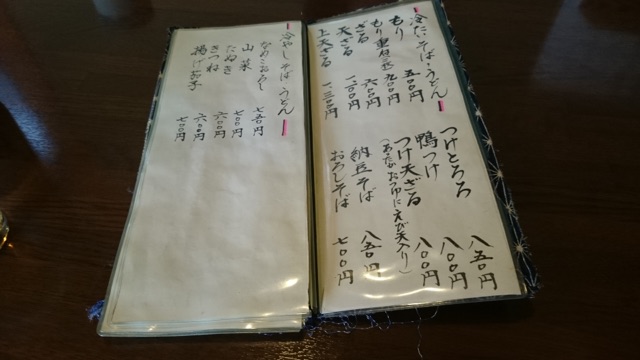 冷たいそば・うどん
もり 五〇〇円
もり重ね(二枚) 九〇〇円
ざる 六〇〇円
天ざる 一、一〇〇円
上天ざる 一、三〇〇円
つけとろろ 八五〇円
鴨つけ 一、〇〇〇円
つけ天ざる 一、一〇〇円
(あたたかおつゆにえび天入り)
納豆そば 八五〇円
おろしそば 七〇〇円
冷やしそば・うどん
なめこおろし 七五〇円
山菜 七〇〇円
たぬき 六〇〇円
きつね 六〇〇円
揚げ茄子 七〇〇円